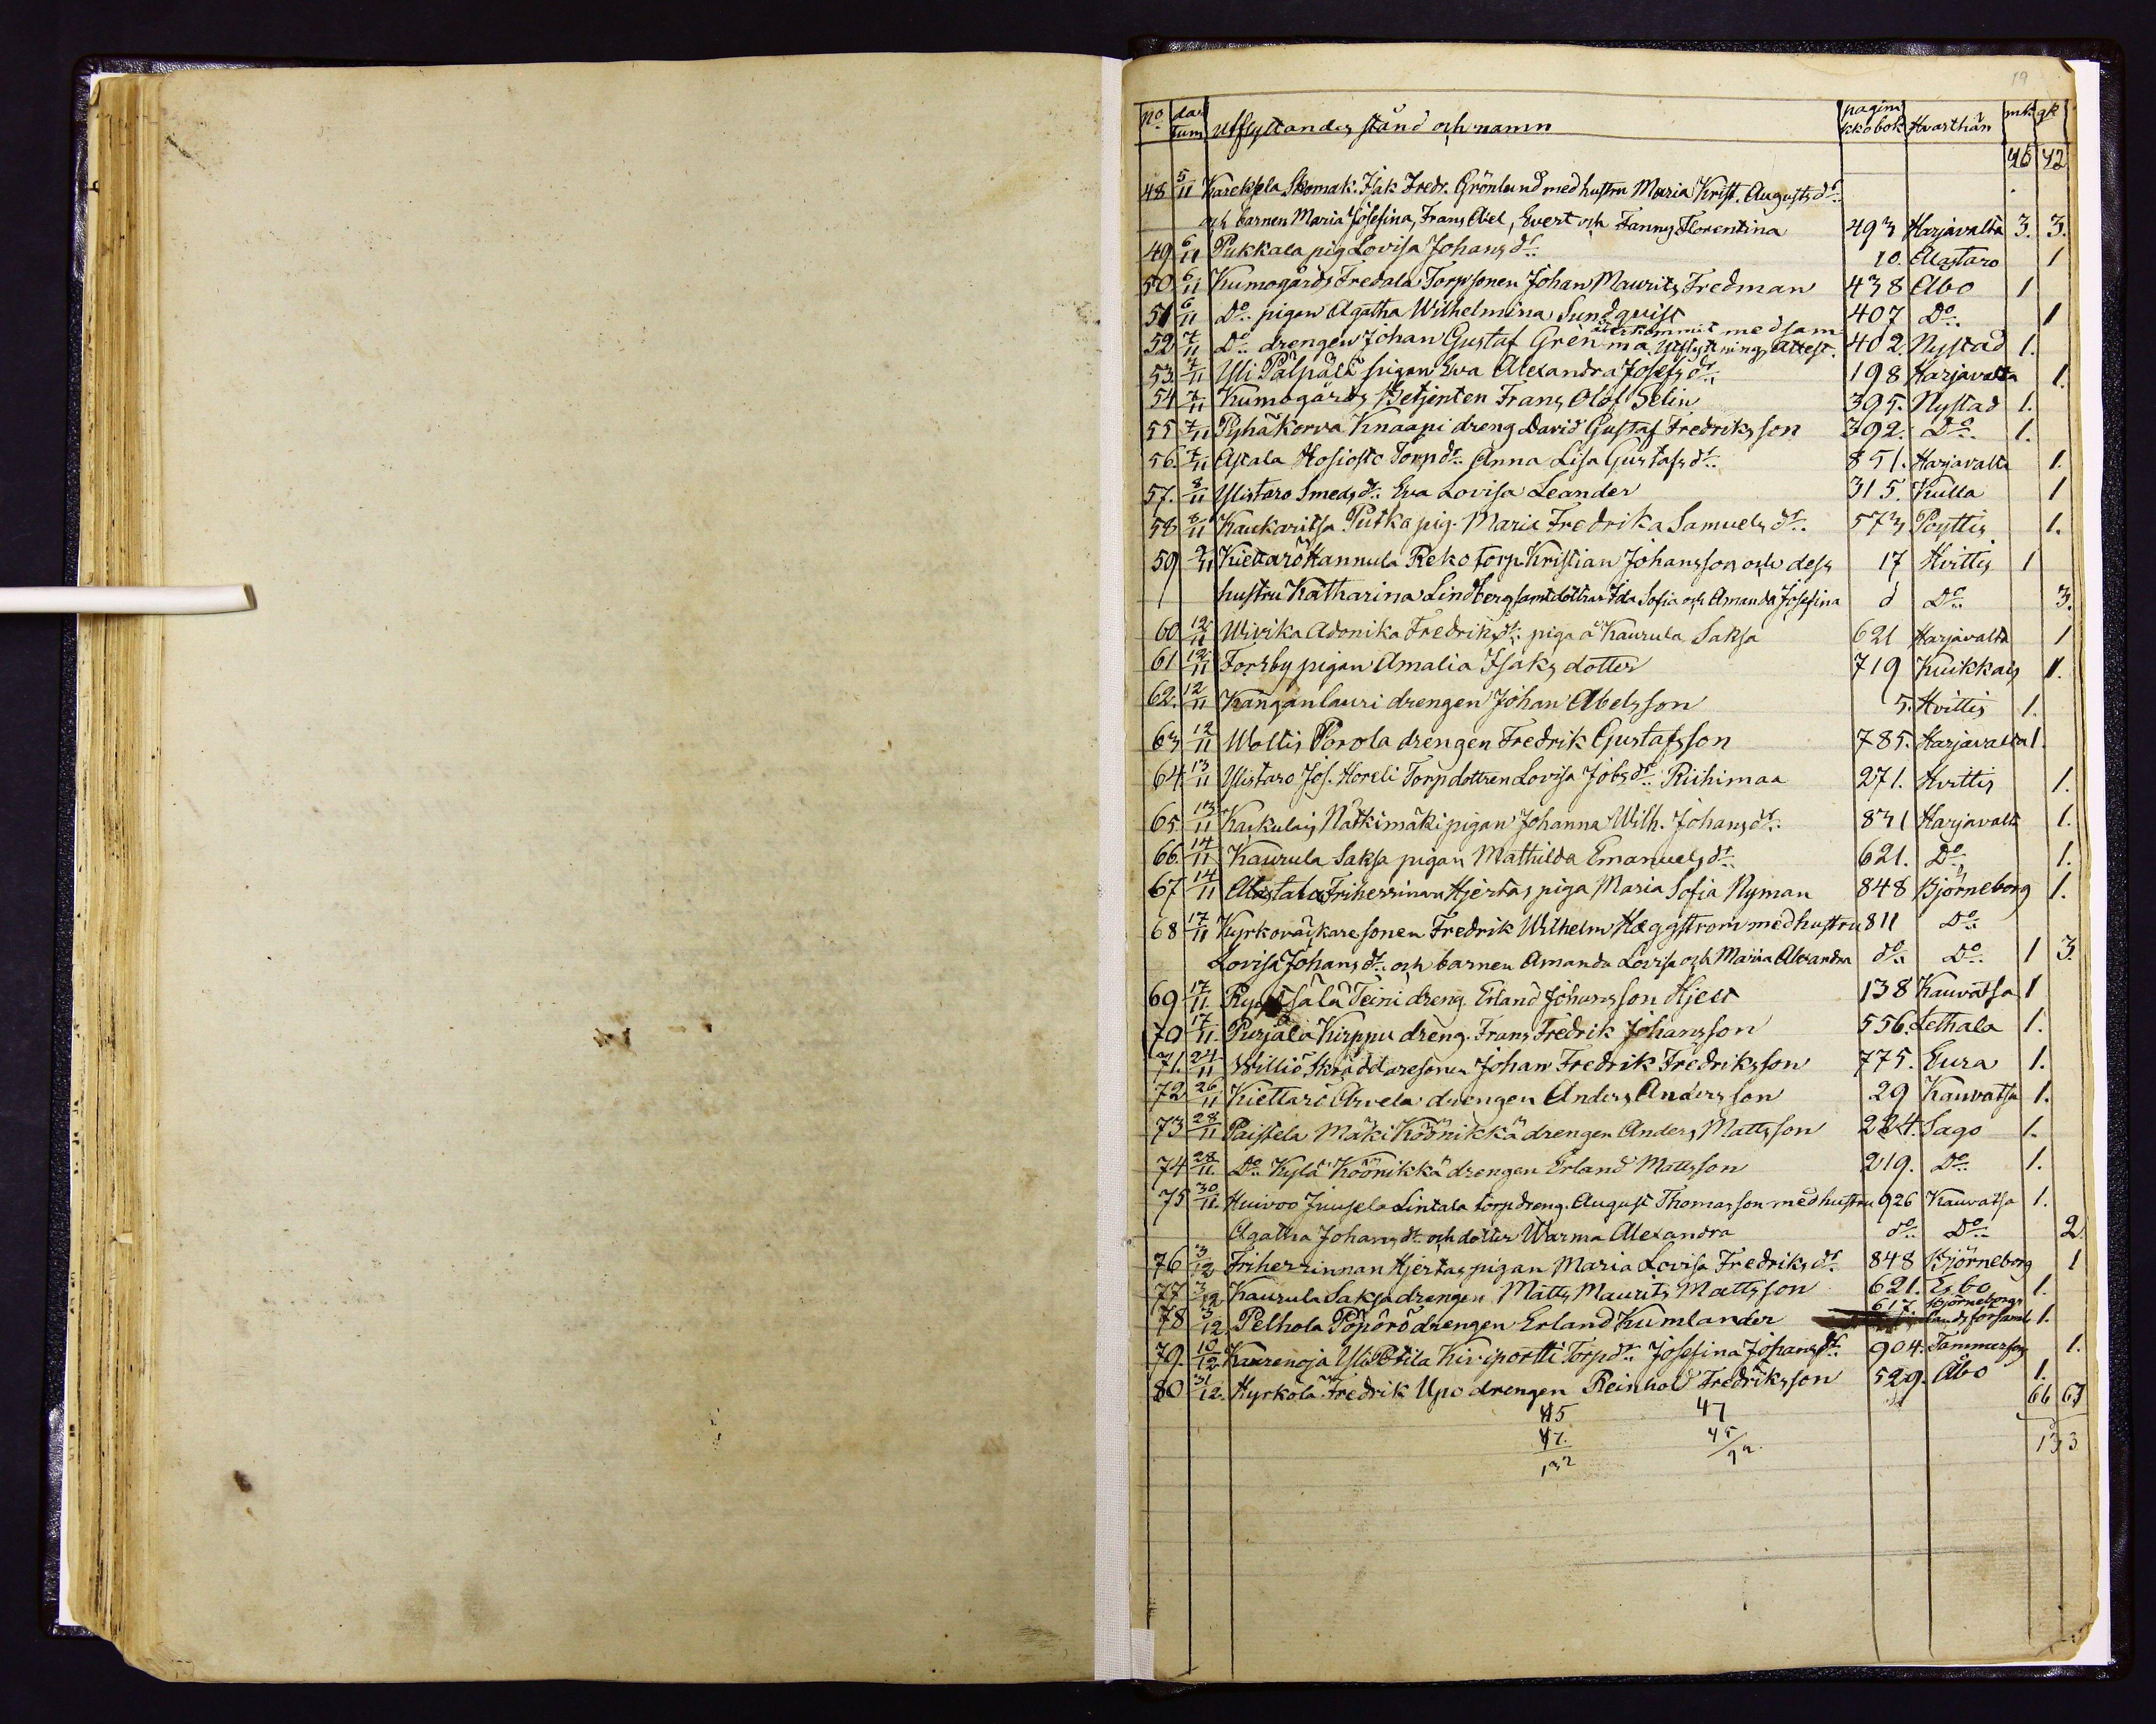 19
no datum utflyttandes stånd och namn pagin i kkobok Hvarthän mk qk
46 42
48 5/11 Kareksela Skomak. Isak Fredr. Grönlund med hustru Maria Krist. Augustsdr.
och barnen Maria Josefina, Frans Abel, Evert och Fanny Florentina 493 Harjavalta 3. 3.
49 6/11 Pukkala pig Lovisa Johansdr. 10. Alastaro 1
50 6/11 Kumogårds Fredala Torpsonen Johan Maurits Fredman 438 Åbo 1
51 6/11 Do. pigan Agatha Wilhelmina Sundqvist 407 Do. 1
återkommit med sam
52 7/11 Do. drengen Johan Gustaf Gren ma utflyttnings Attest. 402. Nystad 1.
53. 7/11 Yli Pälpälä pigan Eva Alexandra Josefsdr. 198 Harjavalta 1.
54 7/11 Kumogårds Betjenten Frans Olof Selin 395. Nystad 1.
55 7/11 Pyhäkorva Knaapi dreng David Gustaf Fredriksson 392. Do. 1.
56. 7/11 Astala Hosiosto Torpdr. Anna Lisa Gustafsdr. 851. Harjavalta 1.
57. 8/11 Ylistaro Smedsdr. Eva Lovisa Leander 315. Kulla 1
58 8/11 Kaukaritsa Putka pig. Maria Fredrika Samuelsdr. 573 Pöyttis 1.
59 9/11 Kiettarö Hannula Reko torp. Kristian Johansson och dess 17 Hvittis 1
hustru Katharina Lindberg samt döttrar Ida Sofia och Amanda Josefina d Do. 3.
60 12/11 Ulrika Adonika Fredriksdr. piga å Kaurula Saksa 621 Harjavalta 1
61 12/11 Forsby pigan Amalia Isaks dotter 719 Kuikkais 1.
62. 12/11 Kanganlauri drengen Johan Abelsson 5. Hvittis 1.
63 12/11 Woltis Porola drengen Fredrik Gustafsson 785. Harjavalta 1.
64. 13/11 Ylistaro Jos. Horeli Torpdottren Lovisa Jobsdr. Riihimaa 271. Hvittis 1.
65. 13/11 Kaskulais Nätkimäki pigan Johanna Wilh. Johansdr. 831 Harjavalta 1.
66. 14/11 Kaurula Saksa pigan Mathilda Emanuelsdr. 621. Do. 1.
67 14/11 Friherrinnan Hjertas piga Maria Sofia Nyman 848 Björneborg 1.
68 17/11 Kyrkoväktaresonen Fredrik Wilhelm Hæggström med hustru 811 Do.
Lovisa Johansdr. och barnen Amanda Lovisa och Maria Alexandra do. Do. 1 3.
69 17/11. Teini dreng. Erland Johansson Hjelt 138 Kauvatsa 1
70 17/11. Purjala Kirppu dreng. Frans Fredrik Johansson 556. Lethala 1.
71. 24/11 Williö Skräddaresonen Johan Fredrik Fredriksson 775. Eura 1.
72 26/11 Kiettarö Arvela drengen Anders Andersson 29 Kauvatsa 1.
73 28/11 Paistela Mäki Köönikkä drengen Anders Mattsson 224. Sago 1.
74 28/11. Do. Kylä Köönikkä drengen Erland Mattsson 219. Do. 1.
75 30/11. Huivoo Juusela Lintala torpdreng. August Thomasson med hustru 926 Kauvatsa 1.
Agatha Johansdr. och dotter Warma Alexandra do. Do. 2.
76 3/12 Friherrinnan Hjertas pigan Maria Lovisa Fredriksdr. 848 Björneborg 1
77 3/12 Kaurula Saksa drengen Matts Maurits Mattsson 621. Esbo 1.
78 3/12. Pelhola Pöpörö drengen Erland Kumlander 617. Björneborgs landsförsaml 1.
79. 10/12 Yli Potila Kiviportti Torpdr. Josefina Johansdr. 904. Tammerfors 1.
80 31/12. Hyrkölä Fredrik Upo drengen Reinhold Fredriksson 529. Åbo 1.
66 67
45 47
47. 45
132 92.
133